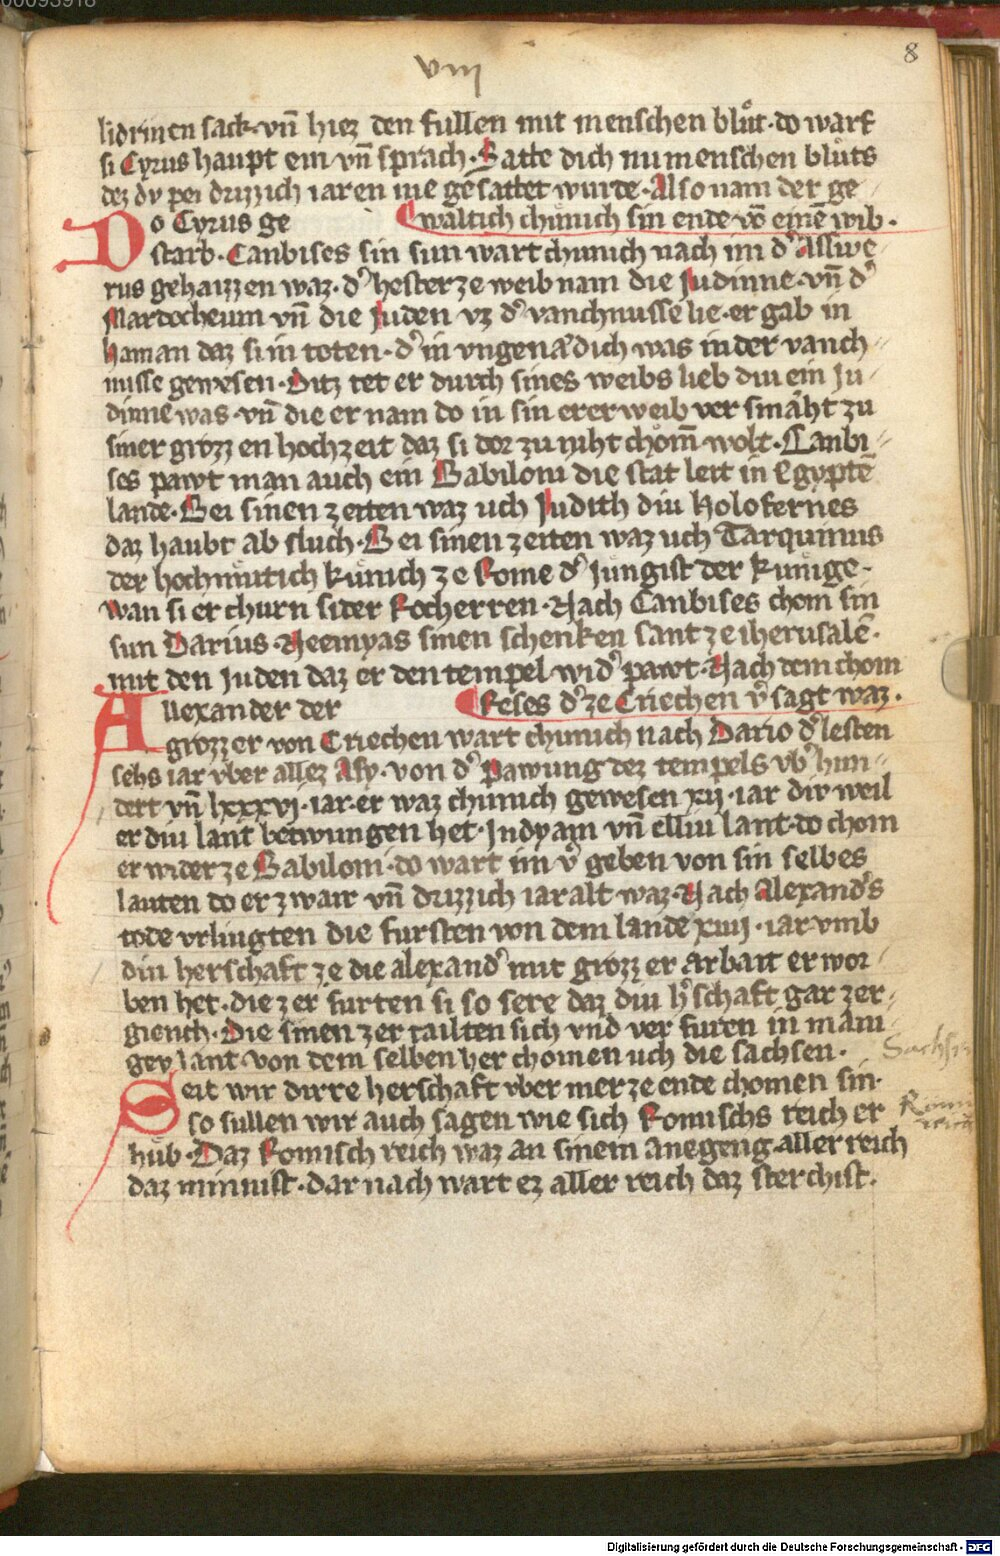 00093918
8
viii
lidrinen sack· vn̄ hiez den fullen mit menschen blůt· do warf
si Cyrus haupt ein vn̄ sprach· Satte dich nu menschen blůts
dez dv pei drizzich iaren nie gesattet wurde· Also nam der ge
waltich chůnich sin ende vō einē wib·
Do Cyrus ge
starb· Canbises sin sun wart chunich nach im dˀ Asswe
rus gehaizzen waz· dˀ hester ze weib nam die Judinne· vn̄ dˀ
Mardocheum vn̄ die Juden vz dˀ vanchnusse lie· er gab in
haman daz si in toten· dˀ in vngenādich was in der vanch
nusse gewesen· Ditz tet er durch sines weibs lieb diu ein Ju
dinne was· vn̄ die er nam do in sin erer weib versmāht zu
siner grozzen hochzeit daz si dor zu niht chom̄ wolt· Canbi
ses pawt man auch ein Babiloni die stat leit in Egyptē
lande· Bei sinen zeiten waz uch Judith diu Holofernes
daz haubt ab sluch· Bei sinen zeiten waz uch Tarquinius
der hochmůtich kůnich ze Rome dˀ jungist der kunige·
wan si er churn sider Rocherren· Nach Canbises chom sin
sun Darius· Neemyas sinen schenken sant ze iherusalē·
mit den Juden daz er den tempel widˀ pawt· Nach dem chom
Reses dˀ ze Criechen vˀsagt waz·
Allexander der
grozzer von Criechen wart chunich nach Dario dˀ lesten
sehs iar vber allez Asy· von dˀ pawung dez tempels vbˀ hun
dert vn̄ lxxxvj· iar· er waz chunich gewesen xij· iar diw weil
er diu lant betwungen het· Indyam vn̄ elliu lant· do chom
er wider ze Babiloni· do wart im vˀgeben von sin selbes
lauten do er zwair vn̄ drizzich iar alt waz· Nach Alexandˀs
tode vrliugten die fursten von dem lande xiiij· iar vmb
diu herschaft ze die alexandˀ mit grozzer arbait erwor
ben het· die zerfurten si so sere daz diu hˀschaft gar zer
giench· Die sinen zertailten sich vnd verfuren in mani
gev lant von dem selben her chomen uch die sachsen·
Sachsen
Seit wir dirre herschaft vber mer ze ende chomen sin·
so sullen wir auch sagen wie sich Romischs reich er
hůb· Daz Romisch reich waz an sinem anegeng aller reich
daz minnist· dar nach wart ez aller reich daz sterchist·
Digitalisierung gefördert durch die Deutsche Forschungsgemeinschaft - DFG